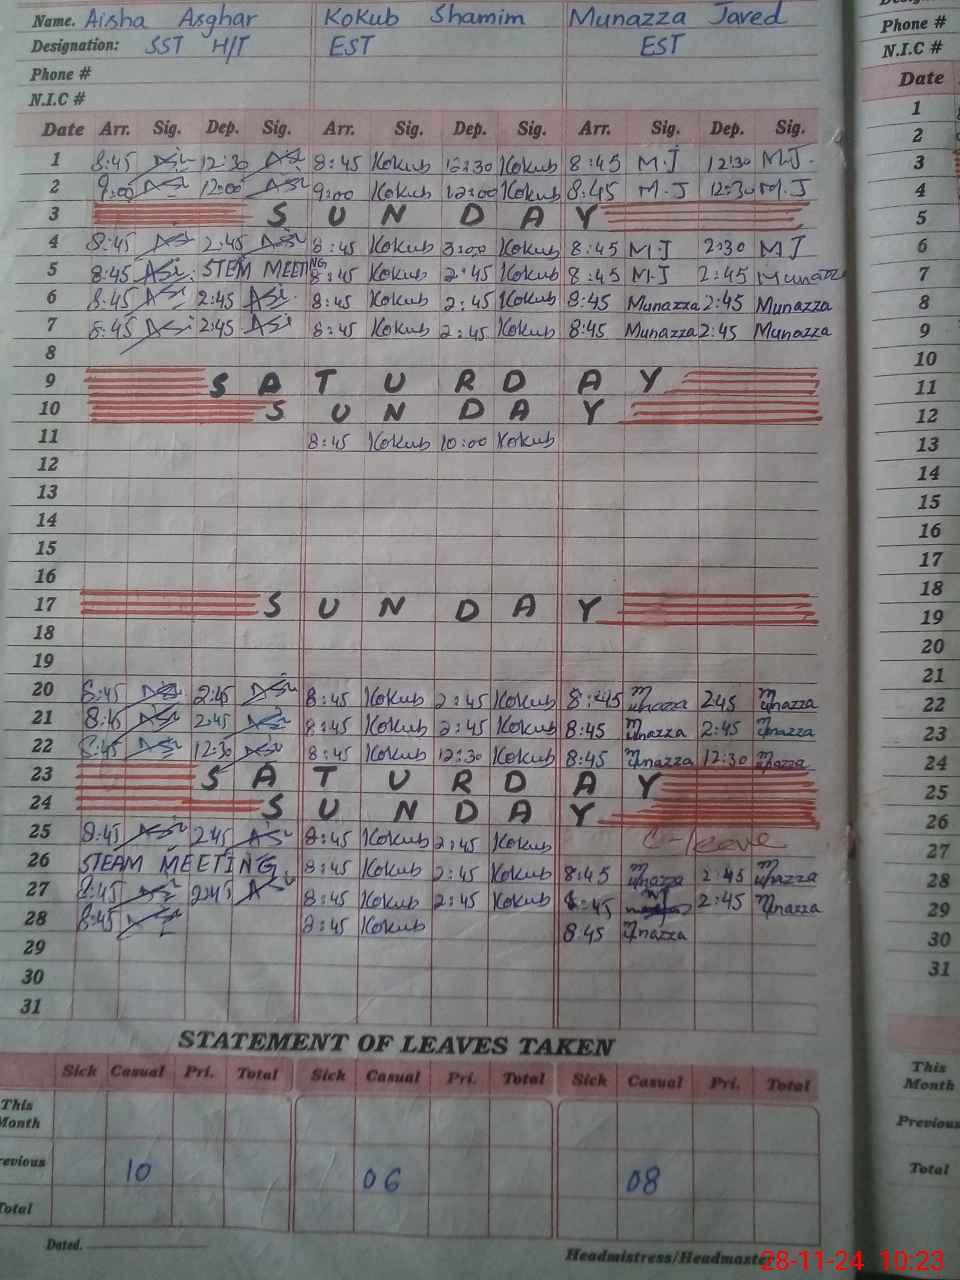 Name. Aisha Asghar Kokub Shamim Munazza Javed
Designation: SST H/T EST EST
Phone #
N.I.C #
Date Arr. Sig. Dep. Sig. Arr. Sig. Dep. Sig. Arr. Sig. Dep. Sig.
1 8:45 12:30 8:45 Kokub 12:30 Kokub 8:45 M.J 12:30 M.J.
2 9:00 12:00 9:00 Kokub 12:00 Kokub 8:45 M.J 12:30 M.J
3 SUNDAY
4 8:45 2:45 8:45 Kokub 3:00 Kokub 8:45 M.J 2:30 MJ
5 8:45 STEM MEETING 8:45 Kokub 2:45 Kokub 8:45 M.J 2:45 Munazza
6 8:45 2:45 8:45 Kokub 2:45 Kokub 8:45 Munazza 2:45 Munazza
7 8:45 2:45 8:45 Kokub 2:45 Kokub 8:45 Munazza 2:45 Munazza
8
9 SATURDAY
10 SUNDAY
11 8:45 Kokub 10:00 Kokub
12
13
14
15
16
17 SUNDAY
18
19
20 8:45 2:45 8:45 Kokub 2:45 Kokub 8:45 Munazza 2:45 Munazza
21 8:45 2:45 8:45 Kokub 2:45 Kokub 8:45 Munazza 2:45 Munazza
22 8:45 12:30 8:45 Kokub 12:30 Kokub 8:45 Munazza 12:30 Munazza
23 SATURDAY
24 SUNDAY
25 8:45 2:45 8:45 Kokub 2:45 Kokub C-leave
26 STEAM MEETING 8:45 Kokub 2:45 Kokub 8:45 Munazza 2:45 Munazza
27 8:45 2:45 8:45 Kokub 2:45 Kokub 8:45 2:45 Munazza
28 8:45 8:45 Kokub 8:45 Munazza
29
30
31
STATEMENT OF LEAVES TAKEN
Sick Casual Pri. Total Sick Casual Pri. Total Sick Casual Pri. Total
This Month
revious 10 06 08
Total
Dated.
Headmistress/Headmaster
Phone #
N.I.C #
Date
1
2
3
4
5
6
7
8
9
10
11
12
13
14
15
16
17
18
19
20
21
22
23
24
25
26
27
28
29
30
31
This Month
Previous
Total
28-11-24 10:23